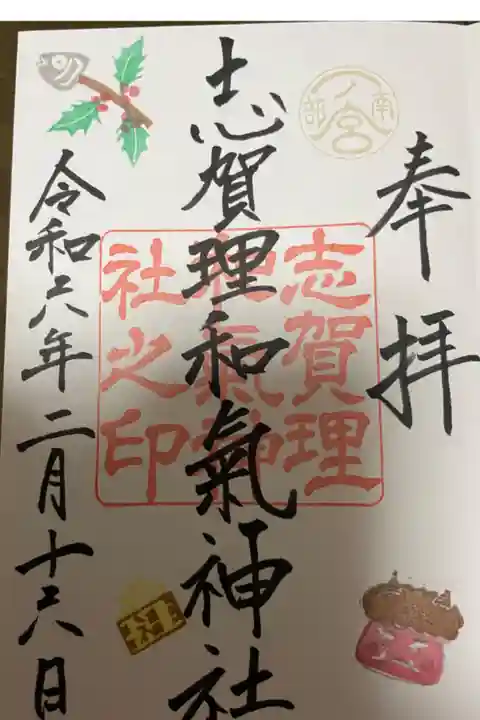 奉拝
南部一ノ宮
志賀理和氣神社
志賀理和氣神社之印
令和六年二月十六日